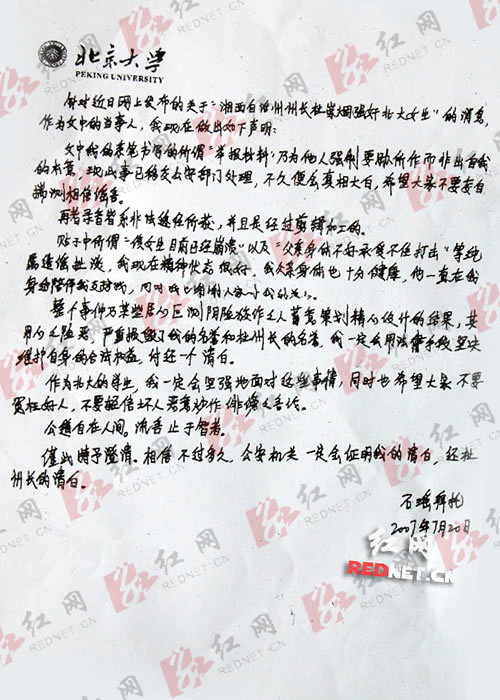 北京大学
PEKING UNIVERSITY
针对近日网上发布的关于“湘西自治州州长杜崇烟强奸北大女生”的消息,
作为文中的当事人,我现在做出如下声明:
文中我的亲笔书写的所谓“举报材料”乃为他人强制要胁所作而非出自我
的本意,现此事已移交公安部门处理,不久便会真相大白,希望大家不要妄自
揣测相信谣言。
再者录音皆系非法途径所获,并且是经过剪辑加工的。
贴子中所谓“该女生目前已经崩溃”以及“父亲身体不好承受不住打击”等纯
属造谣扯淡,我现在精神状态很好,我父亲身体也十分健康,他一直在我
身边陪伴我
整个事件乃某些居心叵测阴险狡诈之人蓄意策划精心设计的结果,其
用心之险恶,严重损毁了我的名誉和杜州长的名誉,我一定会用法律手段坚决
维护自身的合法权益,讨还一个清白。
作为北大的学生,我一定会坚强地面对这些事情,同时也希望大家不要
冤枉好人,不要轻信坏人恶意炒作、诽谤之告诉。
公道自在人间。流言止于智者。
仅此特予澄清。相信不过多久,公安机关一定会证明我的清白,还杜
州长的清白。
石瑶拜托
2007年7月20日
红网
REDNET.CN